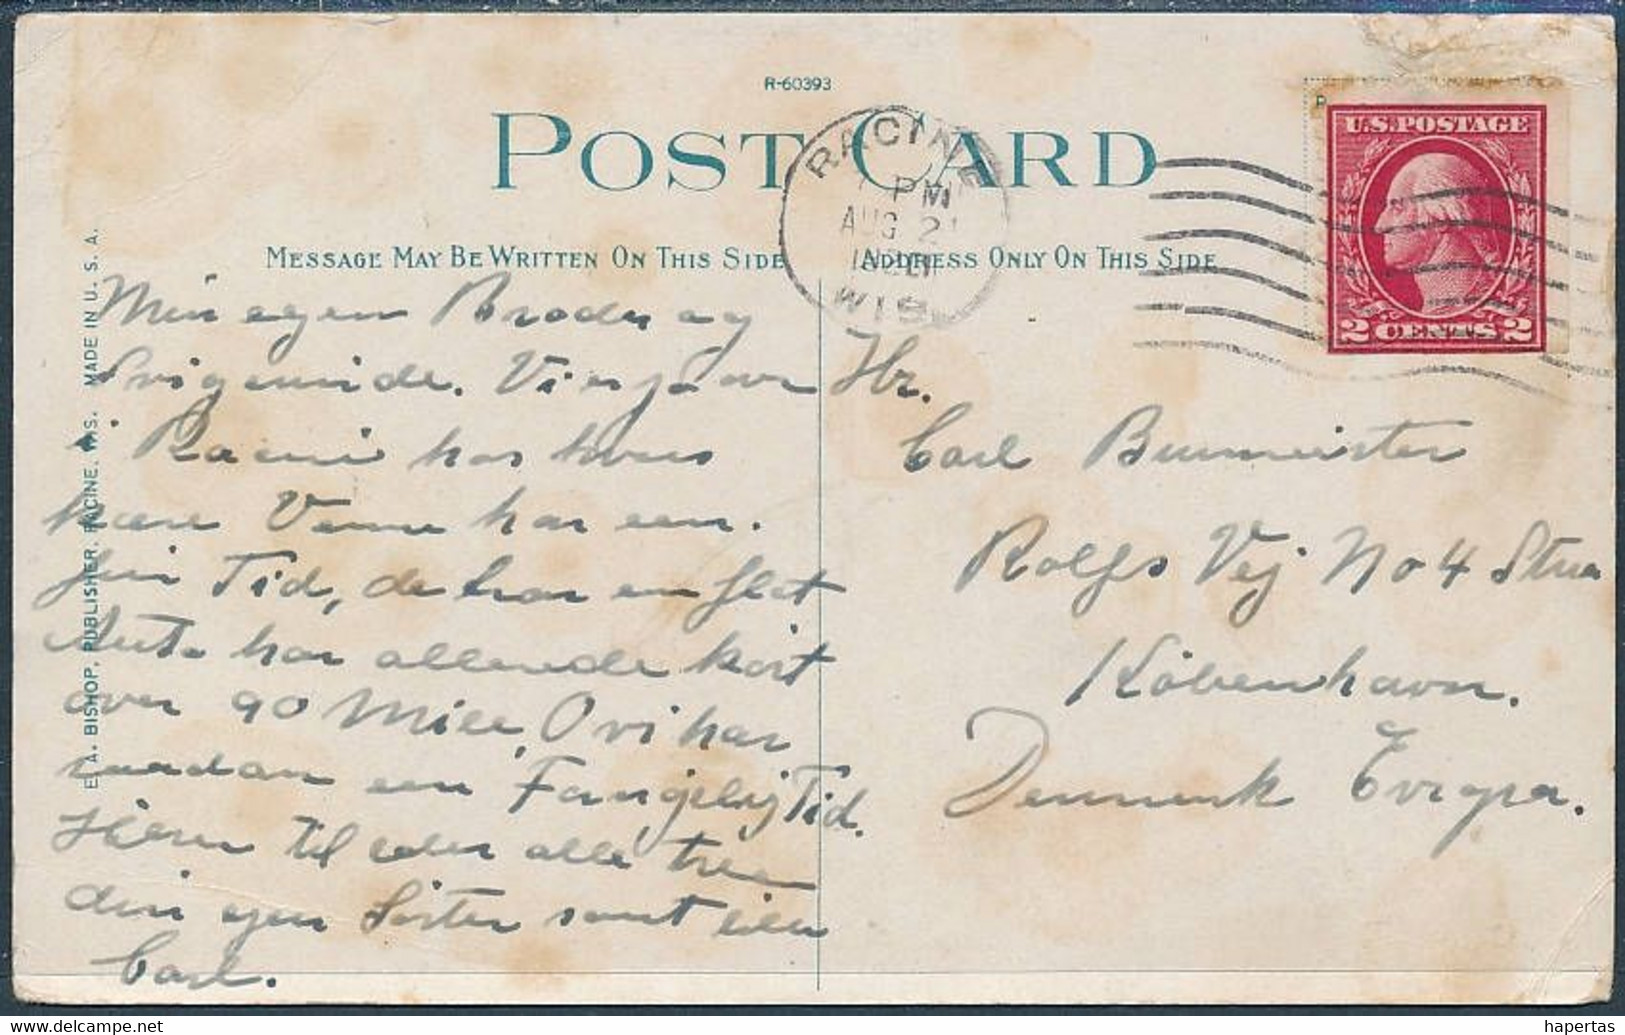 R-60393
POST CARD
RACINE
PM
AUG 21
WIS.
U.S.POSTAGE
2 CENTS 2
MESSAGE MAY BE WRITTEN ON THIS SIDE
ADDRESS ONLY ON THIS SIDE
E. A. BISHOP, PUBLISHER, RACINE, WIS. MADE IN U. S. A.
Min egen Broder og
Svigerinde. Vi er jo over
i Racine hos hores
kære Venne har een
fin Tid, de har en flot
Auto har allerede kört
over 90 Mile, O vi har
saadan een Fornöjelig Tid.
Hilsen til eder alle tre
din egen Söster samt eder
Carl.
Hr.
Carl Burmeister
Rolfs Vej No 4 Stua
Köbenhavn.
Denmark Evropa.
hapertas
delcampe.net